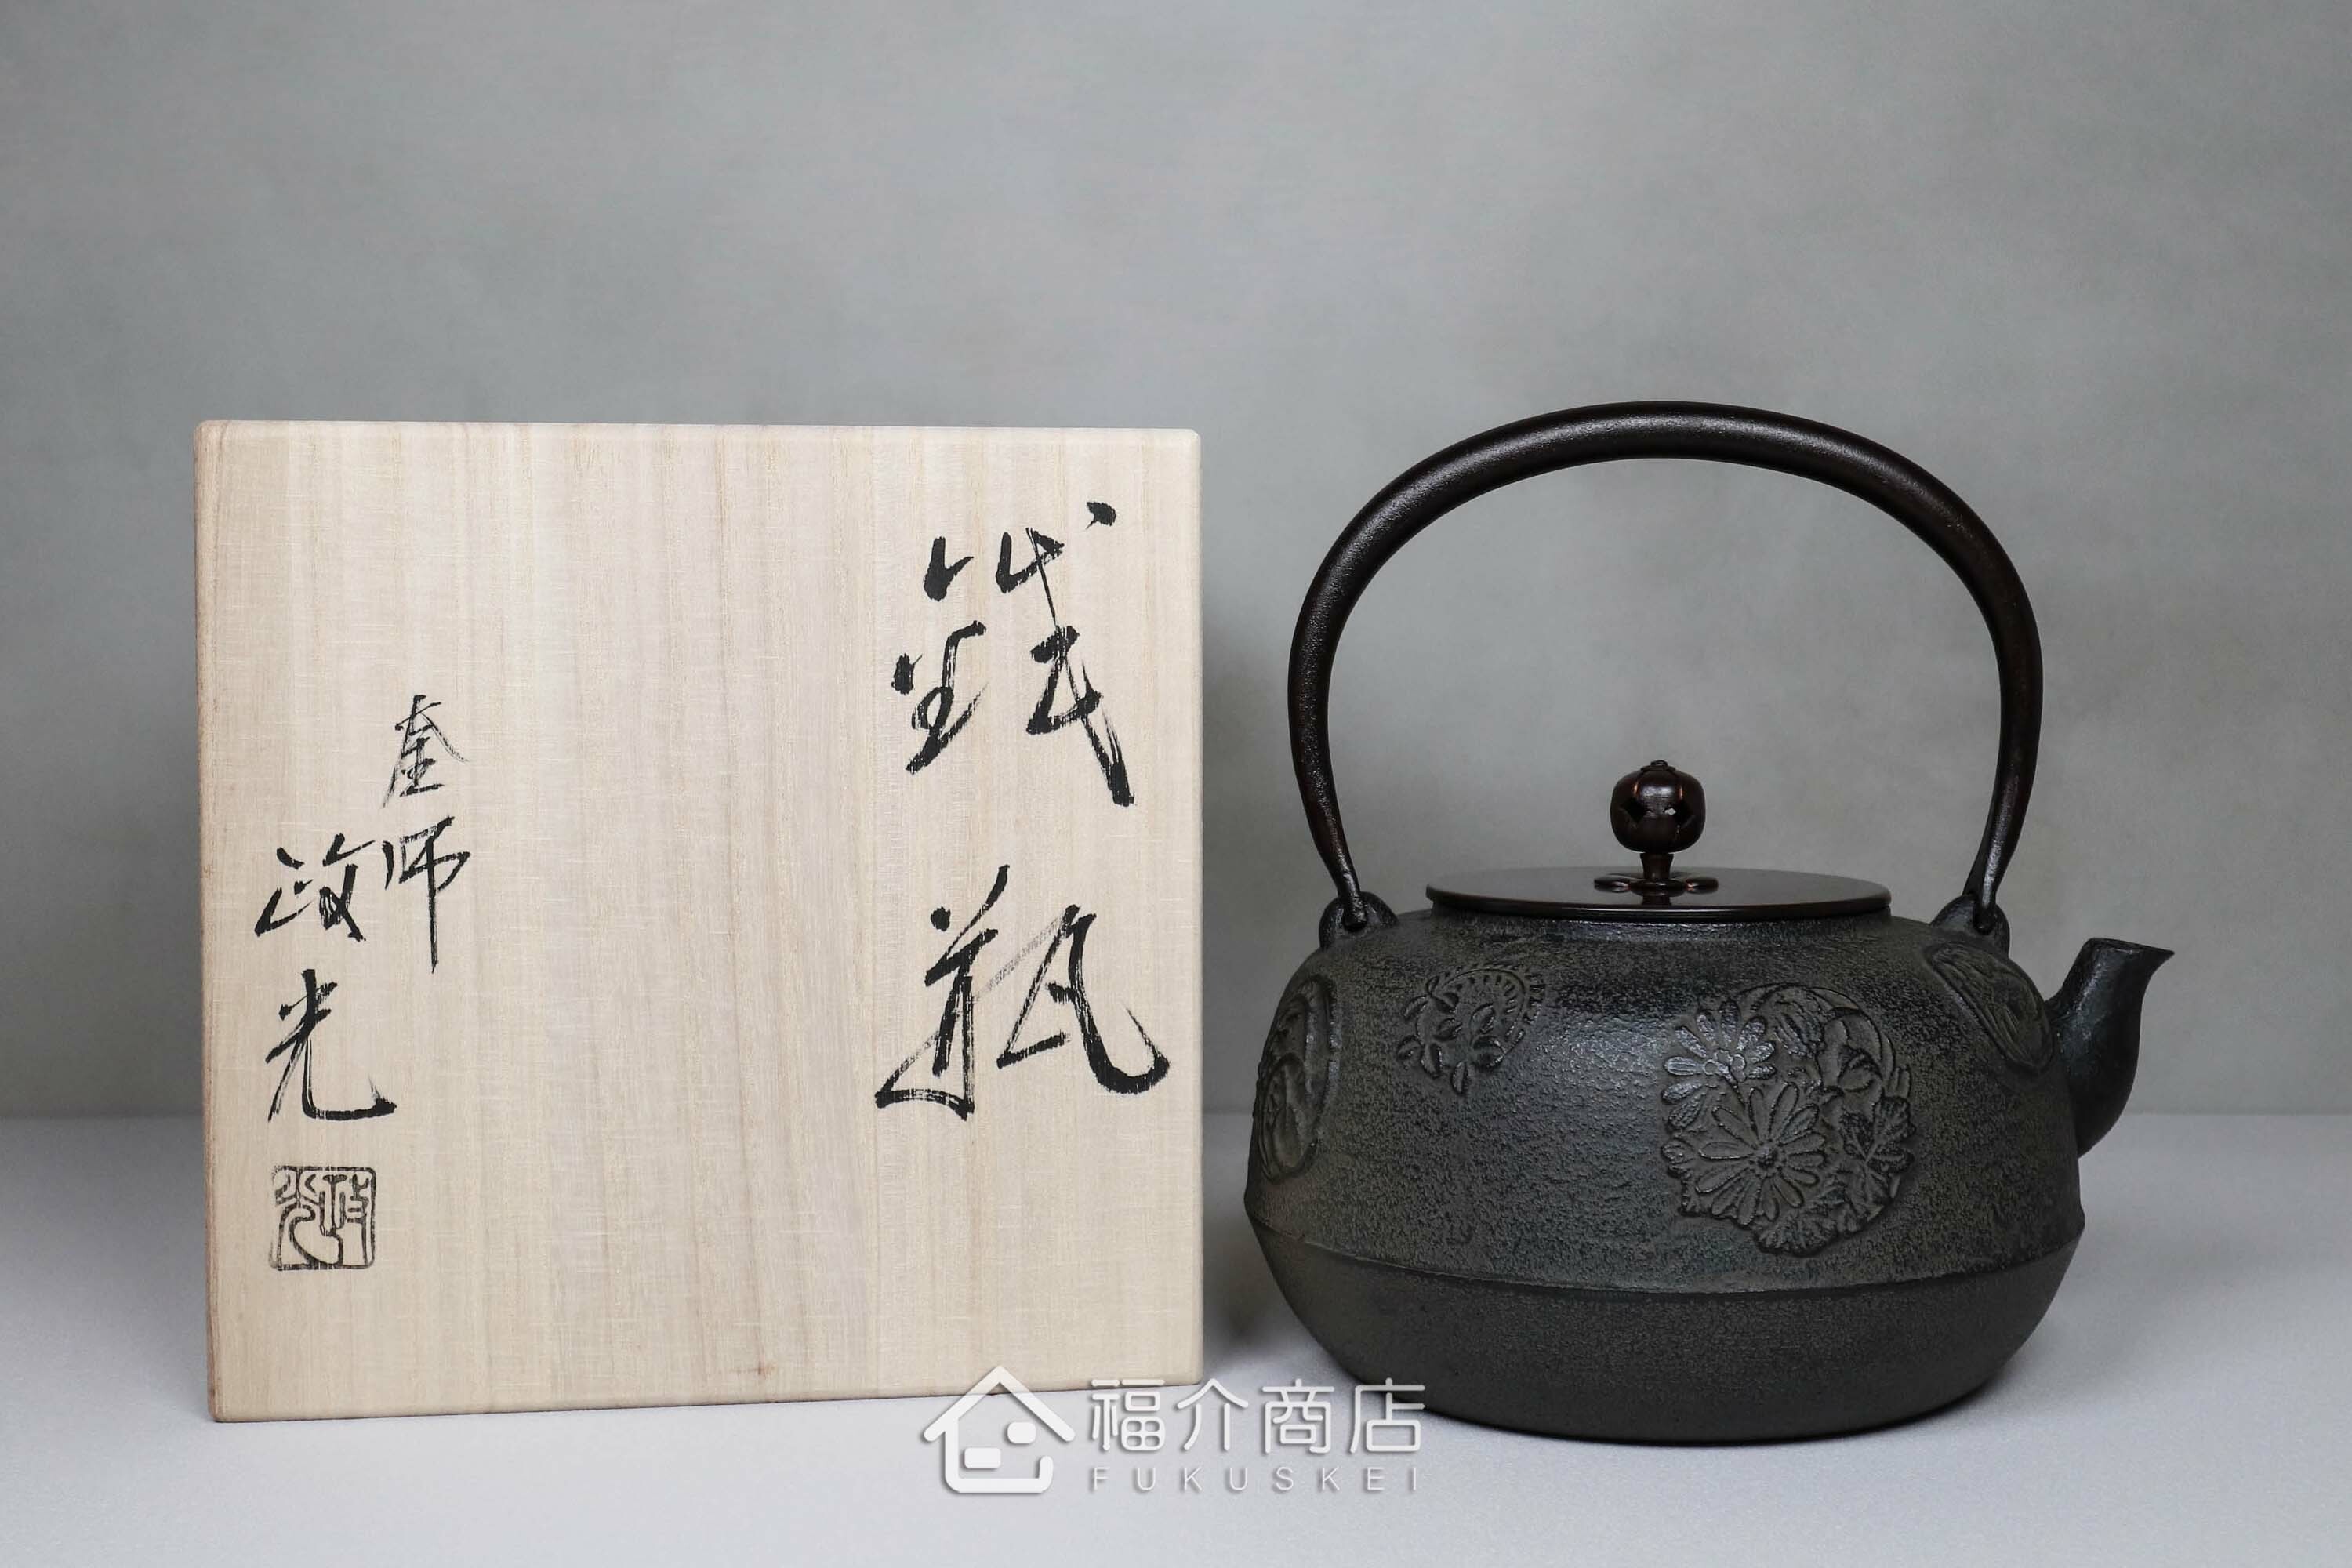 鉄瓶
釜師
政光
政光
福介商店
FUKUSKEI